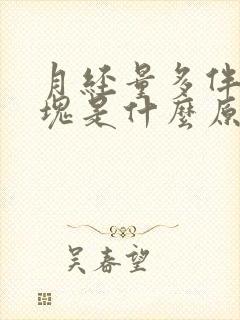 月经量多伴
塊是什麼原
吴春望